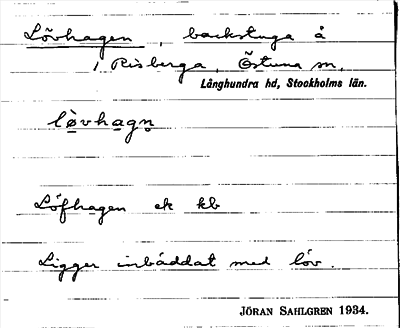 Lövhagen, backstuga å
1 Risberga, Östuna sn,
Långhundra hd, Stockholms län.
lø̀vhagn̥
Löfhagen ek kb
Ligger inbäddat med löv.
JÖRAN SAHLGREN 1934.